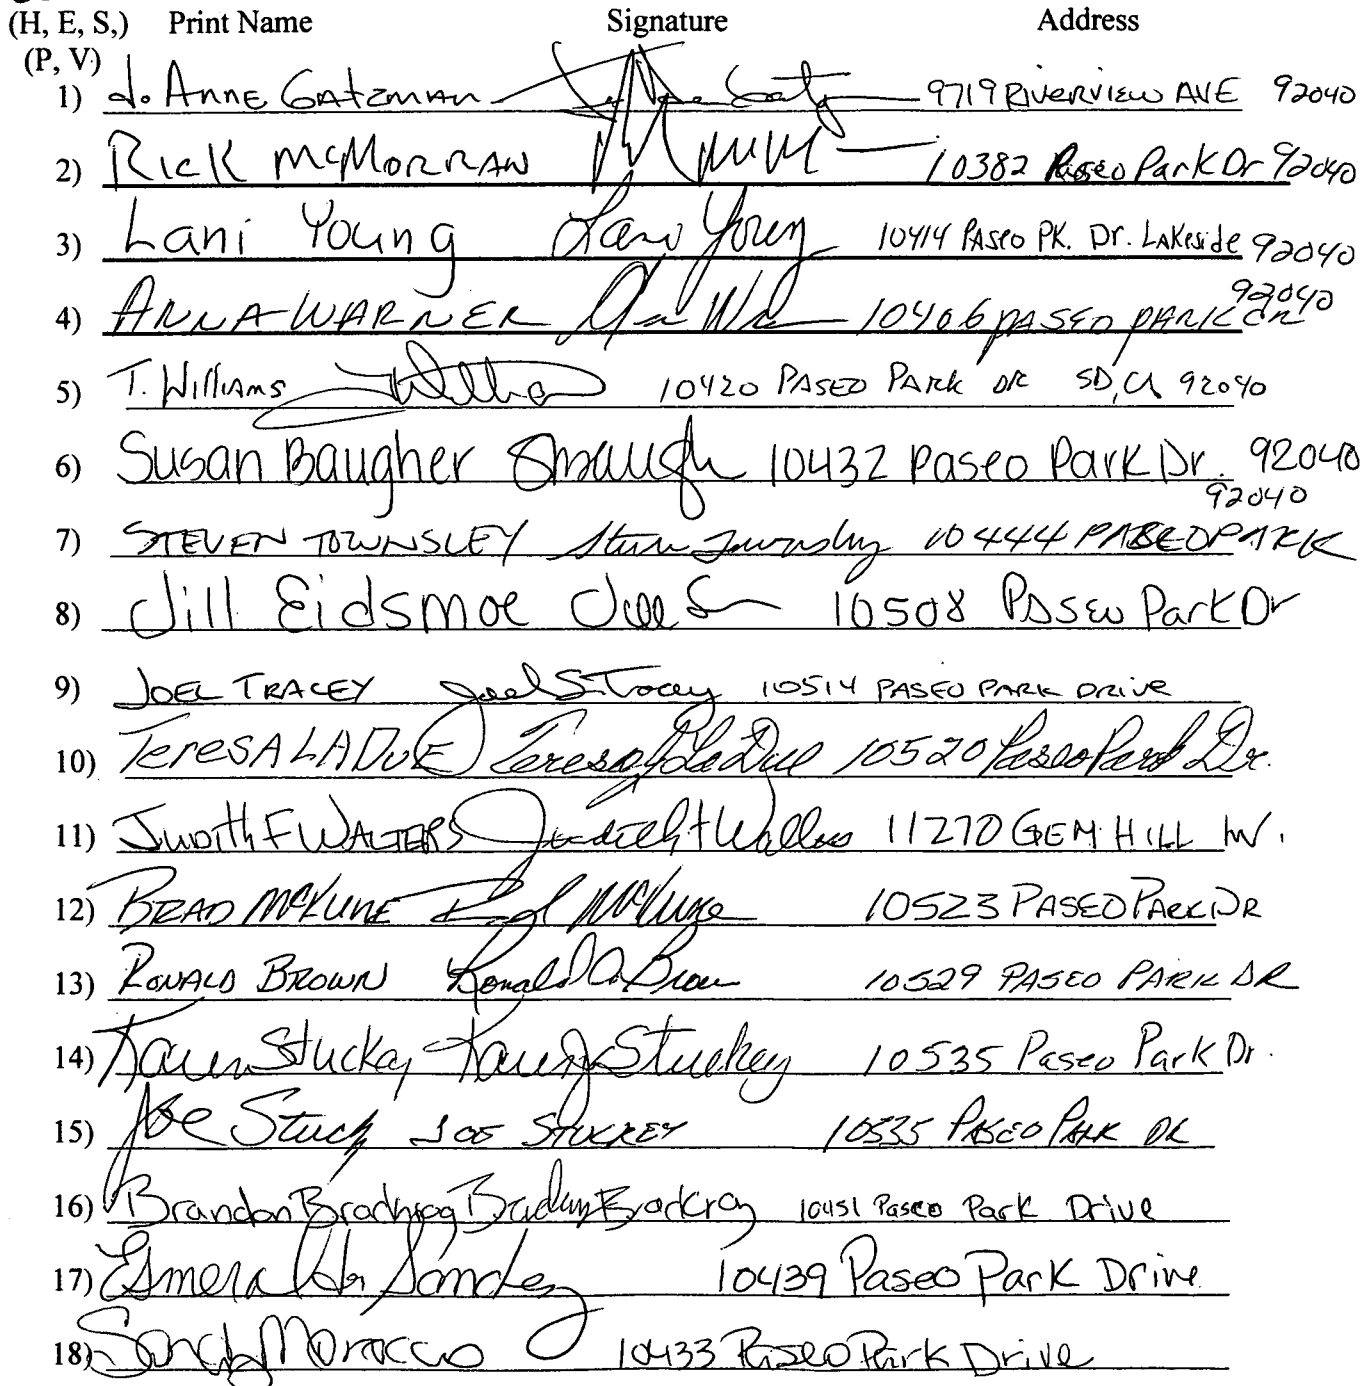 (H, E, S,) Print Name Signature Address
(P, V)
1) J. ANNE GATZMAN 9719 RIVERVIEW AVE 92040
2) RICK McMORRAN 10382 Paseo Park Dr 92040
3) Lani Young Lani Young 10414 PASEO PK. Dr. LAKeside 92040
92040
4) ANNA WARNER 10406 PASEO PARK DR
5) T. WILLIAMS 10420 PASEO PARK DR SD, CA 92040
6) Susan Baugher 10432 Paseo Park Dr. 92040
92040
7) STEVEN TOWNSLEY Steven Townsley 10444 PASEO PARK
8) Jill Eidsmoe 10508 Paseo Park Dr
9) JOEL TRACEY Joel S Tracey 10514 PASEO PARK DRIVE
10) TERESA LADUE Teresa LaDue 10520 Paseo Park Dr.
11) JUDITH F WALTERS Judith F Walters 11270 GEM HILL LN.
12) BRAD McKUNE Brad McKune 10523 PASEO PARK DR
13) RONALD BROWN Ronald A. Brown 10529 PASEO PARK DR
14) Karen Stuckey Karen J Stuckey 10535 Paseo Park Dr.
15) Joe Stuck JOE STUCKEY 10535 PASEO PARK DR
16) Brandon 10451 Paseo Park Drive
17) Esmeralda Sanchez 10439 Paseo Park Drive
18) Sandy Morocco 10433 Paseo Park Drive